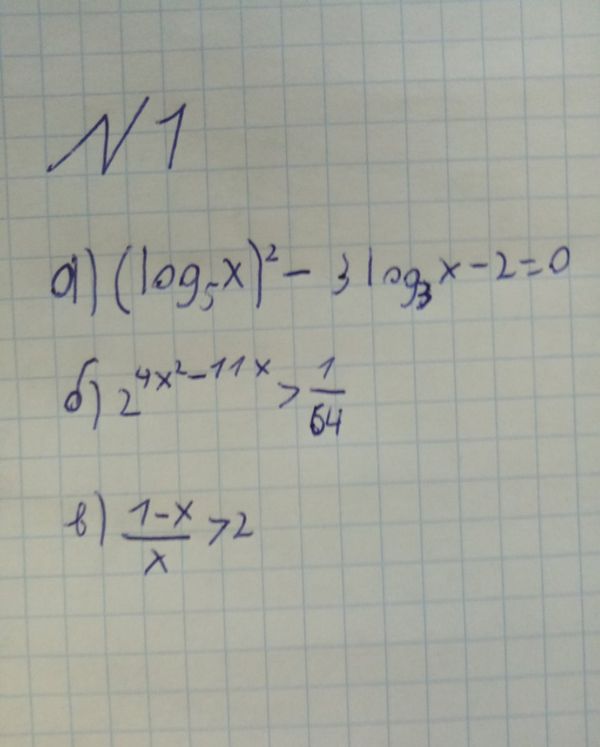 N 1
а) (log₅x)² - 3 log₃x - 2 = 0
б) 2^{4x²-11x} > 1/64
в) (1-x)/x > 2